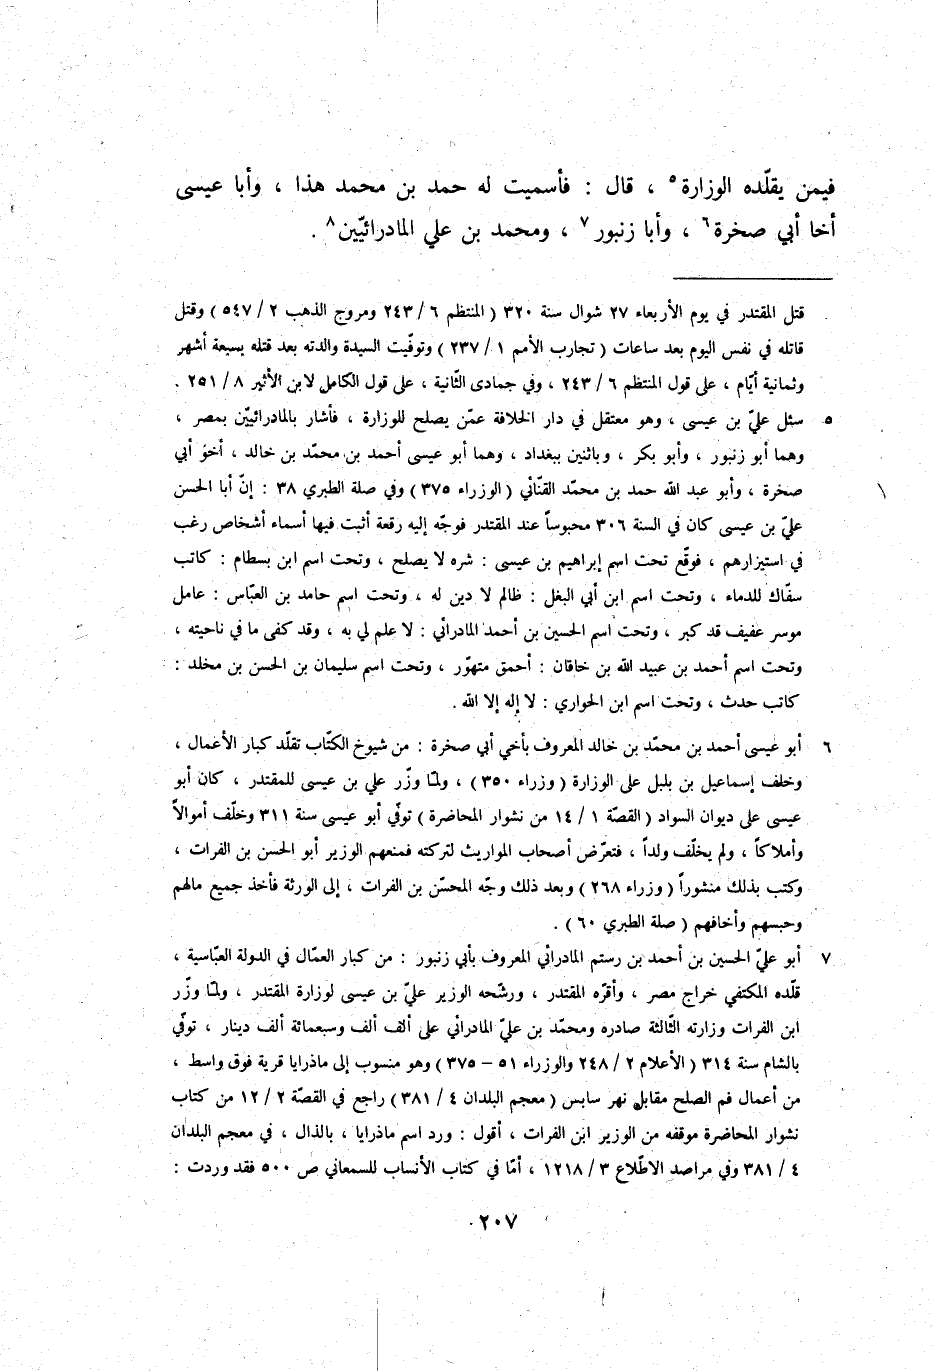 فيمن يقلّده الوزارة٥ ، قال : فأسميت له حمد بن محمد هذا ، وأبا عيسى
أخا أبي صخرة٦ ، وأبا زنبور٧ ، ومحمد بن علي المادرائيّين٨ .
قتل المقتدر في يوم الأربعاء ٢٧ شوال سنة ٣٢٠ ( المنتظم ٦ / ٢٤٣ ومروج الذهب ٢ / ٥٤٧ ) وقتل
قاتله في نفس اليوم بعد ساعات ( تجارب الأمم ١ / ٢٣٧ ) وتوفّيت السيدة والدته بعد قتله بسبعة أشهر
وثمانية أيّام ، على قول المنتظم ٦ / ٢٤٣ ، وفي جمادى الثّانية ، على قول الكامل لابن الأثير ٨ / ٢٥١ .
٥ سئل عليّ بن عيسى ، وهو معتقل في دار الخلافة عمّن يصلح للوزارة ، فأشار بالمادرائيّين بمصر ،
وهما أبو زنبور ، وأبو بكر ، وباثنين ببغداد ، وهما أبو عيسى أحمد بن محمّد بن خالد ، أخو أبي
صخرة ، وأبو عبد الله حمد بن محمّد القنّائي ( الوزراء ٣٧٥ ) وفي صلة الطبري ٣٨ : إنّ أبا الحسن
عليّ بن عيسى كان في السنة ٣٠٦ محبوساً عند المقتدر فوجّه إليه رقعة أثبت فيها أسماء أشخاص رغب
في استيزارهم ، فوقّع تحت اسم إبراهيم بن عيسى : شره لا يصلح ، وتحت اسم ابن بسطام : كاتب
سفّاك للدماء ، وتحت اسم ابن أبي البغل : ظالم لا دين له ، وتحت اسم حامد بن العبّاس : عامل
موسر عفيف قد كبر ، وتحت اسم الحسين بن أحمد المادرائي : لا علم لي به ، وقد كفى ما في ناحيته ،
وتحت اسم أحمد بن عبيد الله بن خاقان : أحمق متهوّر ، وتحت اسم سليمان بن الحسن بن مخلد :
كاتب حدث ، وتحت اسم ابن الحواري : لا إله إلا الله .
٦ أبو عيسى أحمد بن محمّد بن خالد المعروف بأخي أبي صخرة : من شيوخ الكتّاب تقلّد كبار الأعمال ،
وخلف إسماعيل بن بلبل على الوزارة ( وزراء ٣٥٠ ) ، ولمّا وزّر علي بن عيسى للمقتدر ، كان أبو
عيسى على ديوان السواد ( القصّة ١ / ١٤ من نشوار المحاضرة ) توفّي أبو عيسى سنة ٣١١ وخلّف أموالاً
وأملاكاً ، ولم يخلّف ولداً ، فتعرّض أصحاب المواريث لتركته فمنعهم الوزير أبو الحسن بن الفرات ،
وكتب بذلك منشوراً ( وزراء ٢٦٨ ) وبعد ذلك وجّه المحسّن بن الفرات ، إلى الورثة فأخذ جميع مالهم
وحبسهم وأخافهم ( صلة الطبري ٦٠ ) .
٧ أبو عليّ الحسين بن أحمد بن رستم المادرائي المعروف بأبي زنبور : من كبار العمّال في الدولة العبّاسية ،
قلّده المكتفي خراج مصر ، وأقرّه المقتدر ، ورشّحه الوزير عليّ بن عيسى لوزارة المقتدر ، ولمّا وزّر
ابن الفرات وزارته الثّالثة صادره ومحمّد بن عليّ المادرائي على ألف ألف وسبعمائة ألف دينار ، توفّي
بالشام سنة ٣١٤ ( الأعلام ٢ / ٢٤٨ والوزراء ٥١ – ٣٧٥ ) وهو منسوب إلى ماذرايا قرية فوق واسط ،
من أعمال فم الصلح مقابل نهر سابس ( معجم البلدان ٤ / ٣٨١ ) راجع في القصّة ٢ / ١٢ من كتاب
نشوار المحاضرة موقفه من الوزير ابن الفرات ، أقول : ورد اسم ماذرايا ، بالذال ، في معجم البلدان
٤ / ٣٨١ وفي مراصد الاطّلاع ٣ / ١٢١٨ ، أمّا في كتاب الأنساب للسمعاني ص ٥٠٠ فقد وردت :
٢٠٧